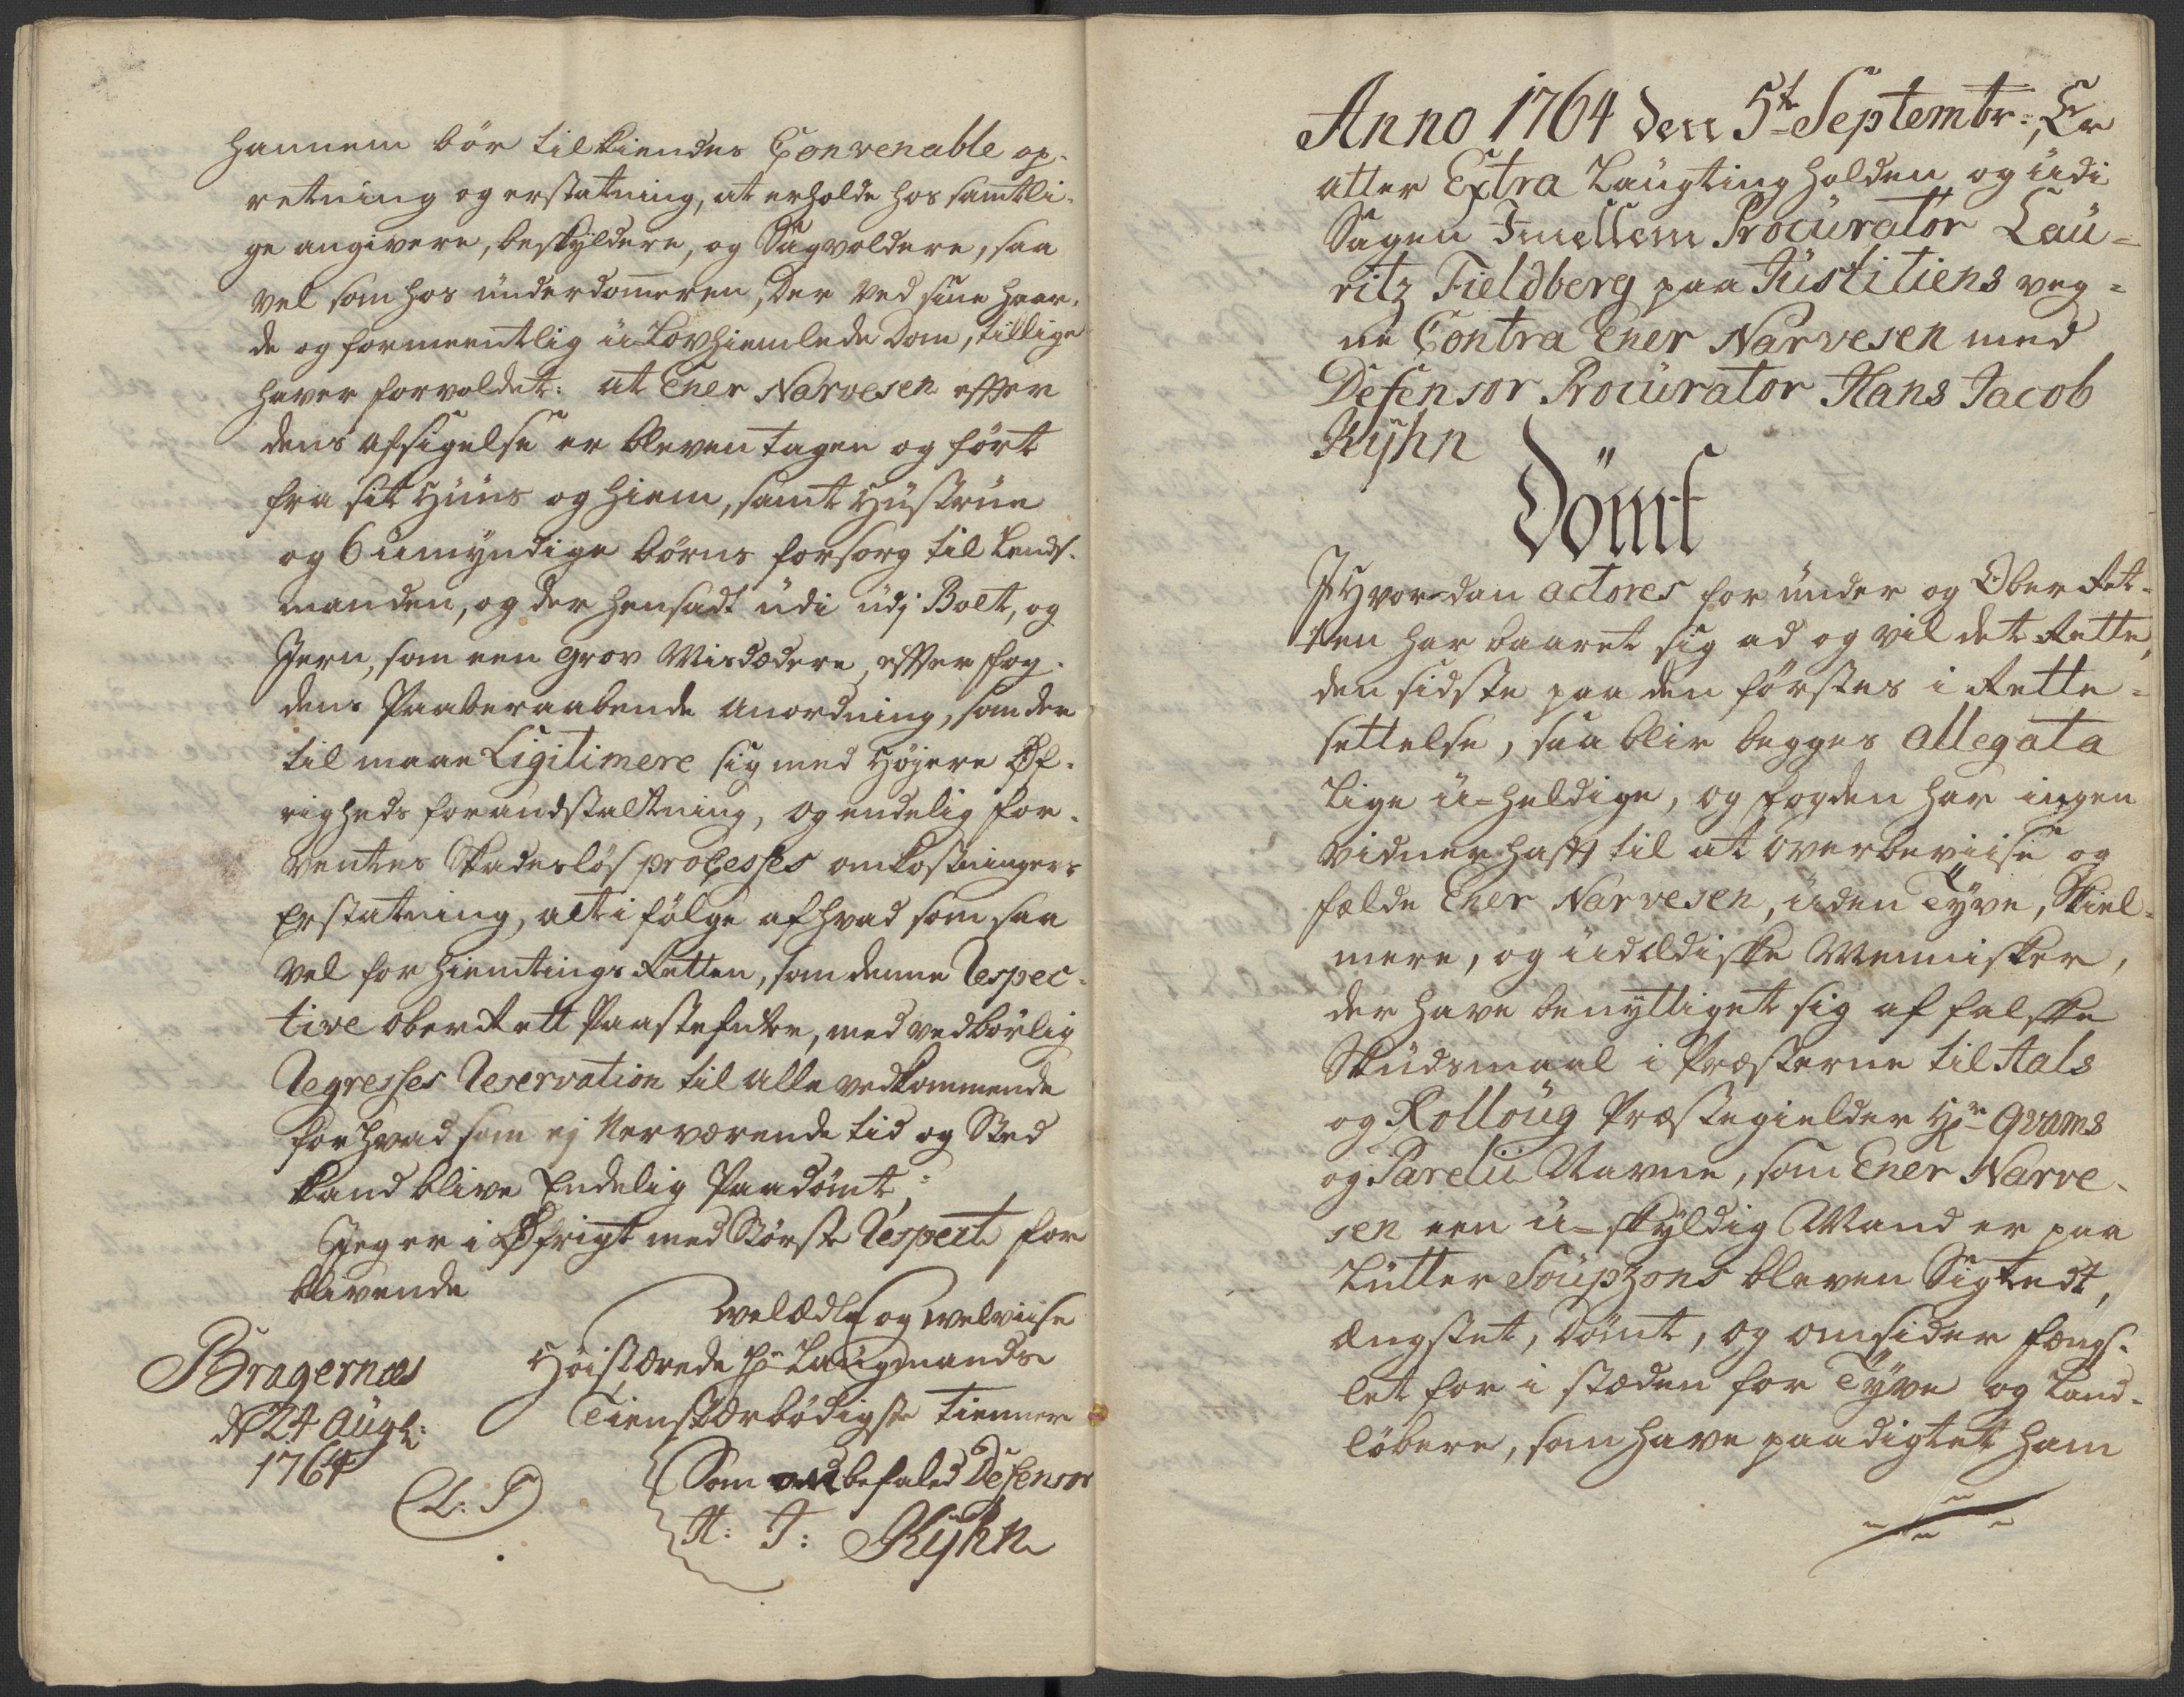 hannem bör tilkiendes Convenable op-
retning og erstatning, at erholde hos samtli-
ge angivere, beskyldere, og Sagvoldere, saa
vel som hos ünderdomeren, der ved sine haar-
de og formeentlig ü-Lovhiemlede dom, tillige
haver forvoldet: at Ener Narvesen effter
dens afsigelse er bleven tagen og ført
fra sit Hüüs og hiem, samt Hüstrüe
og 6 umyndige börns forsorg til Lends-
manden, og der hensadt üdi üdj Bolt, og
Jern, som een grov Misdædere, effter fog-
dens Paaberaabende anordning, som den
til maae Ligitimere sig med Höjere Øf-
righeds foranstaltning, og endelig for-
ventes Skadeslös processes omkostningers
Erstatning, alt i fölge af hvad som saa
vel for hiemtings Retten, som denne Respec-
tive OberRett Paastefnte, med vedbörlig
Regresses Reservation til alle vedkommende
for hvad som ej Nerværende tid og Sted
kand blive Endelig Paadömt;
Jeg er i Øfrigt med Störste Respect for
blivende
Welædle og welviise
Höistærede Hr Laugmands
Tienstærbödigste tienner
Bragernæs
d 24 Augt:
1764
(L: S)
Som anbefaled Defensor
H: J: Kyhn
Anno 1764 den 5te Septembr:, Er
atter Extra Laugting holden og üdi
Sagen Imellem Procürator Laü-
ritz Fieldberg paa Jüstitiens veg-
ne Contra Ener Narvesen med
Defensor Procürator Hans Jacob
Kyhn
Dömt
Hvordan actores for ünder og Ober Ret-
ten har baaret sig ad og vil det Rette,
den sidste paa den förstes i Rette-
settelse, saa blir begges allegata
lige ü-heldige, og fogden har ingen
vidner hafft til at overbeviise og
fælde Ener Narvesen, üden Tyve, Skiel-
mere, og üdædiske Mennisker,
der have benyttiget sig af falske
Sküdsmaal i Præsterne til Aals
og Rolloüg Præstegielder Hr Qvams
og Parelii Navne, som Ener Narve-
sen een ü-skyldig Mand er paa
Lutter Soupzons bleven Sigtedt,
ængstet, dömt, og omsider fængs-
let for i stæden for Tyve og Land-
löbere, som have paadigtet ham